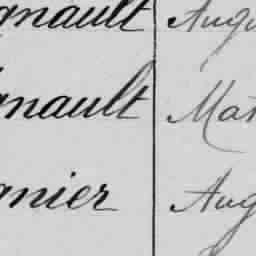 gnault Augu
gnault Mat
gnier Aug